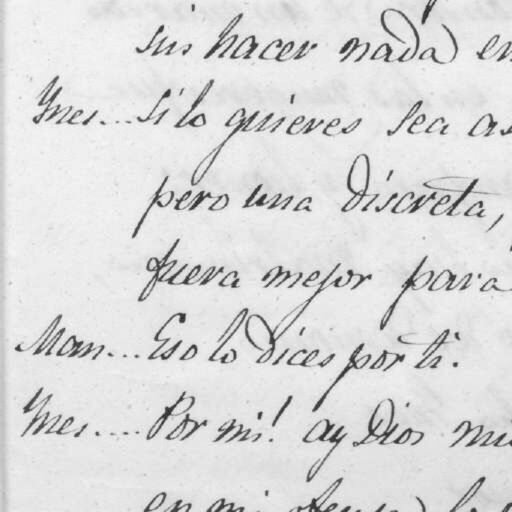 sin hacer nada en
Ynes... Si lo quieres sea as
pero una discreta,
fuera mejor para
Man... Eso lo dices por ti.
Ynes.... Por mi! ay Dios mi
en mi